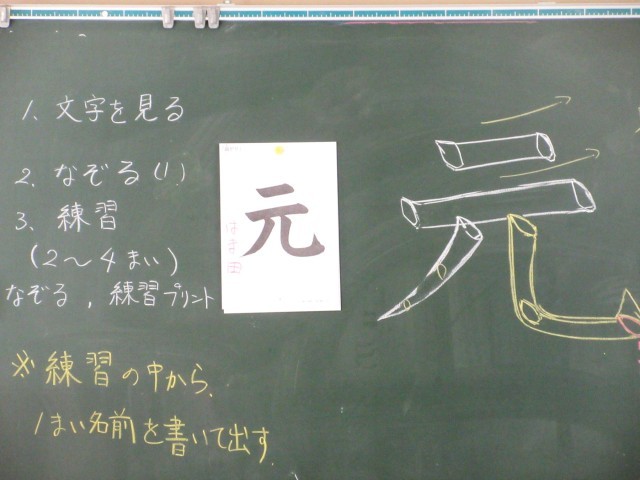 1、文字を見る
2、なぞる(1)
3、練習
(2〜4まい)
なぞる、練習プリント
※練習の中から、
1まい名前を書いて出す。
元
はま田
元